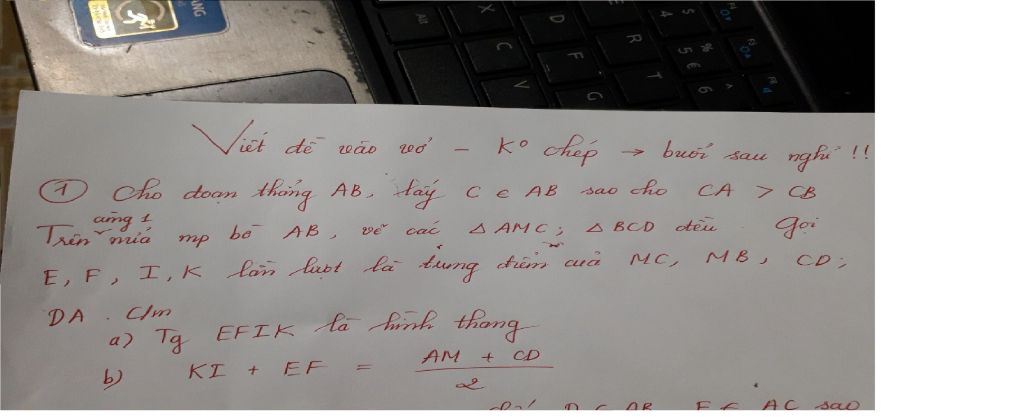 Viết đề vào vở - K° chép → buổi sau nghỉ !!
① Cho đoạn thẳng AB, lấy C ∈ AB sao cho CA > CB
cùng 1
Trên nửa mp bờ AB, vẽ các △ AMC; △ BCD đều. Gọi
E, F, I, K lần lượt là trung điểm của MC, MB, CD;
DA. C/m
a) Tg EFIK là hình thang
b) KI + EF = (AM + CD) / 2
D ∈ AB, E ∈ AC sao